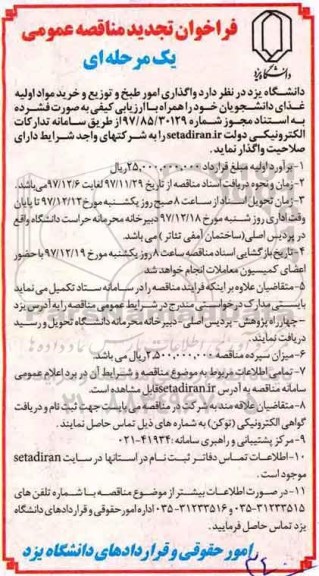 فراخوان تجدید مناقصه عمومی
یک مرحله ای
دانشگاه یزد
دانشگاه یزد در نظر دارد واگذاری امور طبخ و توزیع و خرید مواد اولیه
غذای دانشجویان خود را همراه با ارزیابی کیفی به صورت فشرده
به استناد مجوز شماره ۹۷/۸۵/۳۰۱۲۹ از طریق سامانه تدارکات
الکترونیکی دولت setadiran.ir را به شرکتهای واجد شرایط دارای
صلاحیت واگذار نماید.
۱- برآورد اولیه مبلغ قرارداد ۲۵,۰۰۰,۰۰۰,۰۰۰ریال
۲- زمان و نحوه دریافت اسناد مناقصه از تاریخ ۹۷/۱۱/۲۹ لغایت ۹۷/۱۲/۶ می باشد.
۳- زمان تحویل اسناد از ساعت ۸ صبح روز یکشنبه مورخ ۹۷/۱۲/۱۲ تا پایان
وقت اداری روز شنبه مورخ ۹۷/۱۲/۱۸ دبیرخانه محرمانه حراست دانشگاه واقع
در پردیس اصلی(ساختمان آمفی تئاتر) می باشد
۴- تاریخ بازگشایی اسناد مناقصه ساعت ۸ روز یکشنبه مورخ ۹۷/۱۲/۱۹ با حضور
اعضای کمیسیون معاملات انجام خواهد شد
۵- متقاضیان علاوه بر اینکه فرایند مناقصه را در سامانه ستاد تکمیل می نماید
بایستی مدارک درخواستی مندرج در شرایط عمومی مناقصه را به آدرس یزد
-چهارراه پژوهش - پردیس اصلی - دبیرخانه محرمانه دانشگاه تحویل و رسید
دریافت نمایند.
۶- میزان سپرده مناقصه ۲,۵۰۰,۰۰۰,۰۰۰ ریال می باشد.
۷- تمامی اطلاعات مربوط به موضوع مناقصه و شرایط آن در برد اعلام عمومی
سامانه مناقصه به آدرس setadiran.ir قابل مشاهده است.
۸- متقاضیان علاقه مند به شرکت در مناقصه می بایست جهت ثبت نام و دریافت
گواهی الکترونیکی (توکن) به شماره های ذیل تماس حاصل نمایند.
۹- مرکز پشتیبانی و راهبری سامانه :۴۱۹۳۴-۰۲۱
۱۰- اطلاعات تماس دفاتر ثبت نام در استانها در سایت setadiran
موجود است.
۱۱- در صورت اطلاعات بیشتر از موضوع مناقصه با شماره تلفن های
۳۱۲۳۳۵۱۵-۰۳۵ و ۳۱۲۳۳۵۱۶-۰۳۵ اداره امور حقوقی و قراردادهای دانشگاه
یزد تماس حاصل فرمایید.
امور حقوقی و قراردادهای دانشگاه یزد